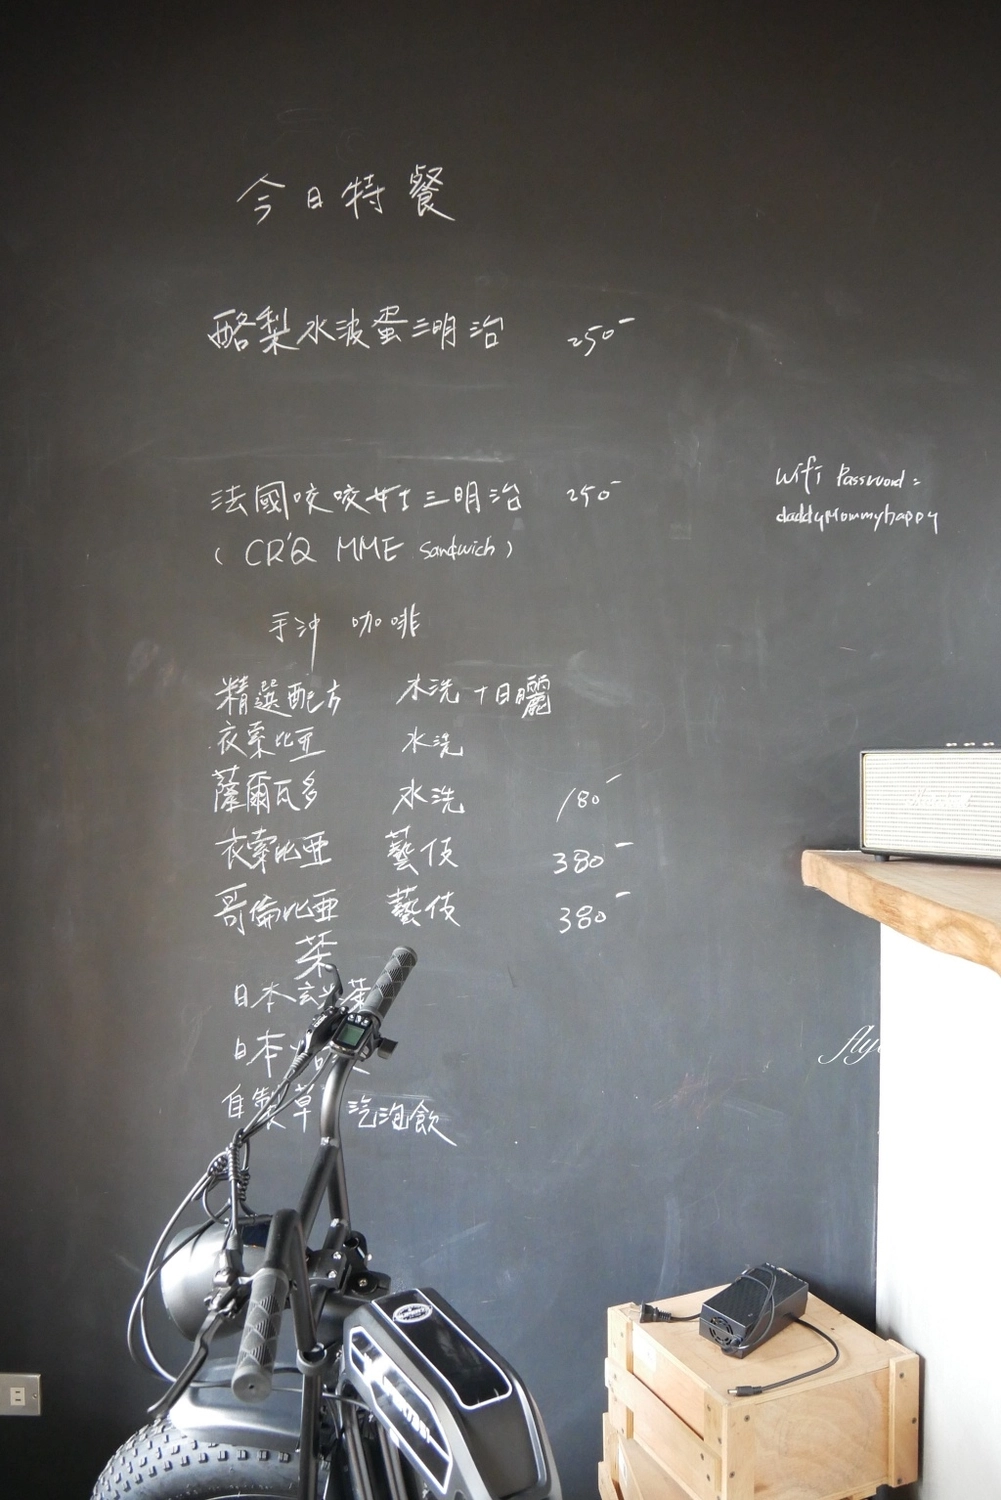 今日特餐
酪梨水波蛋三明治 250-
法國咬咬女士三明治 250-
( CR'Q MME Sandwich )
手沖 咖啡
精選配方 水洗+日曬
衣索比亞 水洗
薩爾瓦多 水洗 180-
衣索比亞 藝伎 380-
哥倫比亞 藝伎 380-
茶
日本玄米茶
日本
自製草 汽泡飲
Wifi Password:
daddyMommyhappy
fly